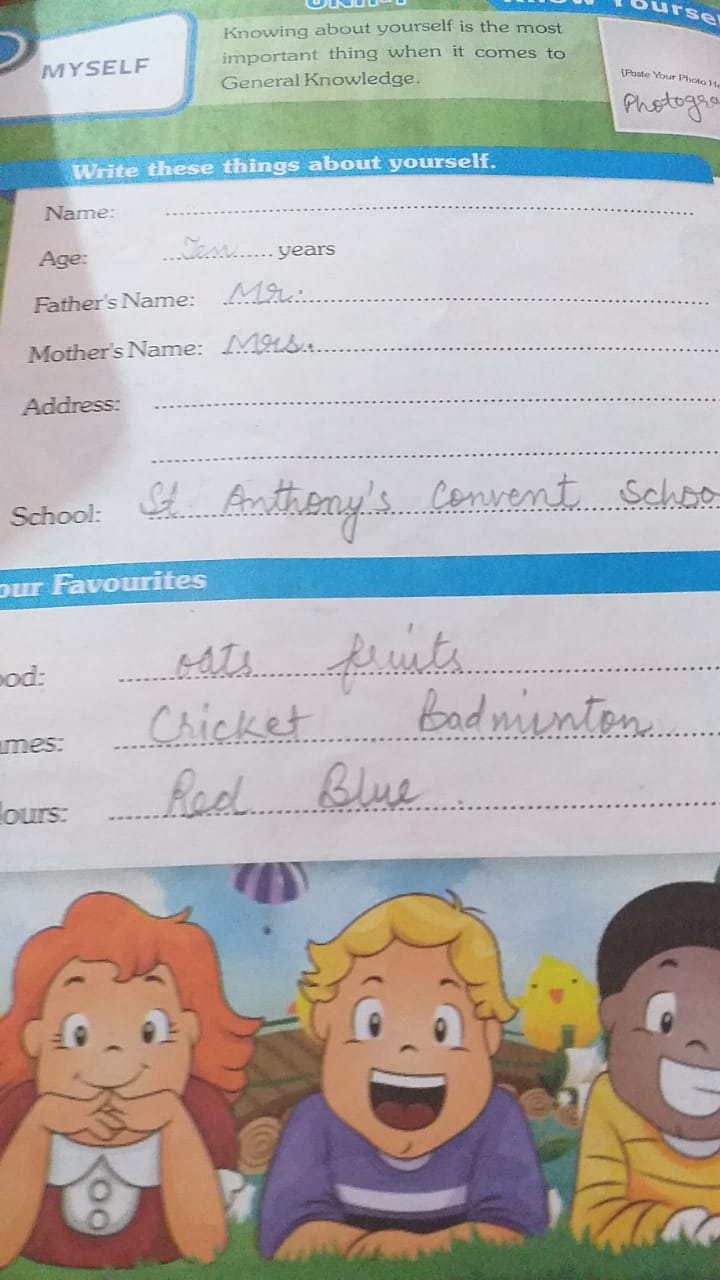 MYSELF
Knowing about yourself is the most
important thing when it comes to
General Knowledge.
[Paste Your Photo
Write these things about yourself.
Name:
Age: Ten years
Father's Name: Mr.
Mother's Name: Mrs.
Address:
School: St Anthony's Convent Schoo
our Favourites
ood: oats fruits
mes: Cricket Badminton
lours: Red Blue